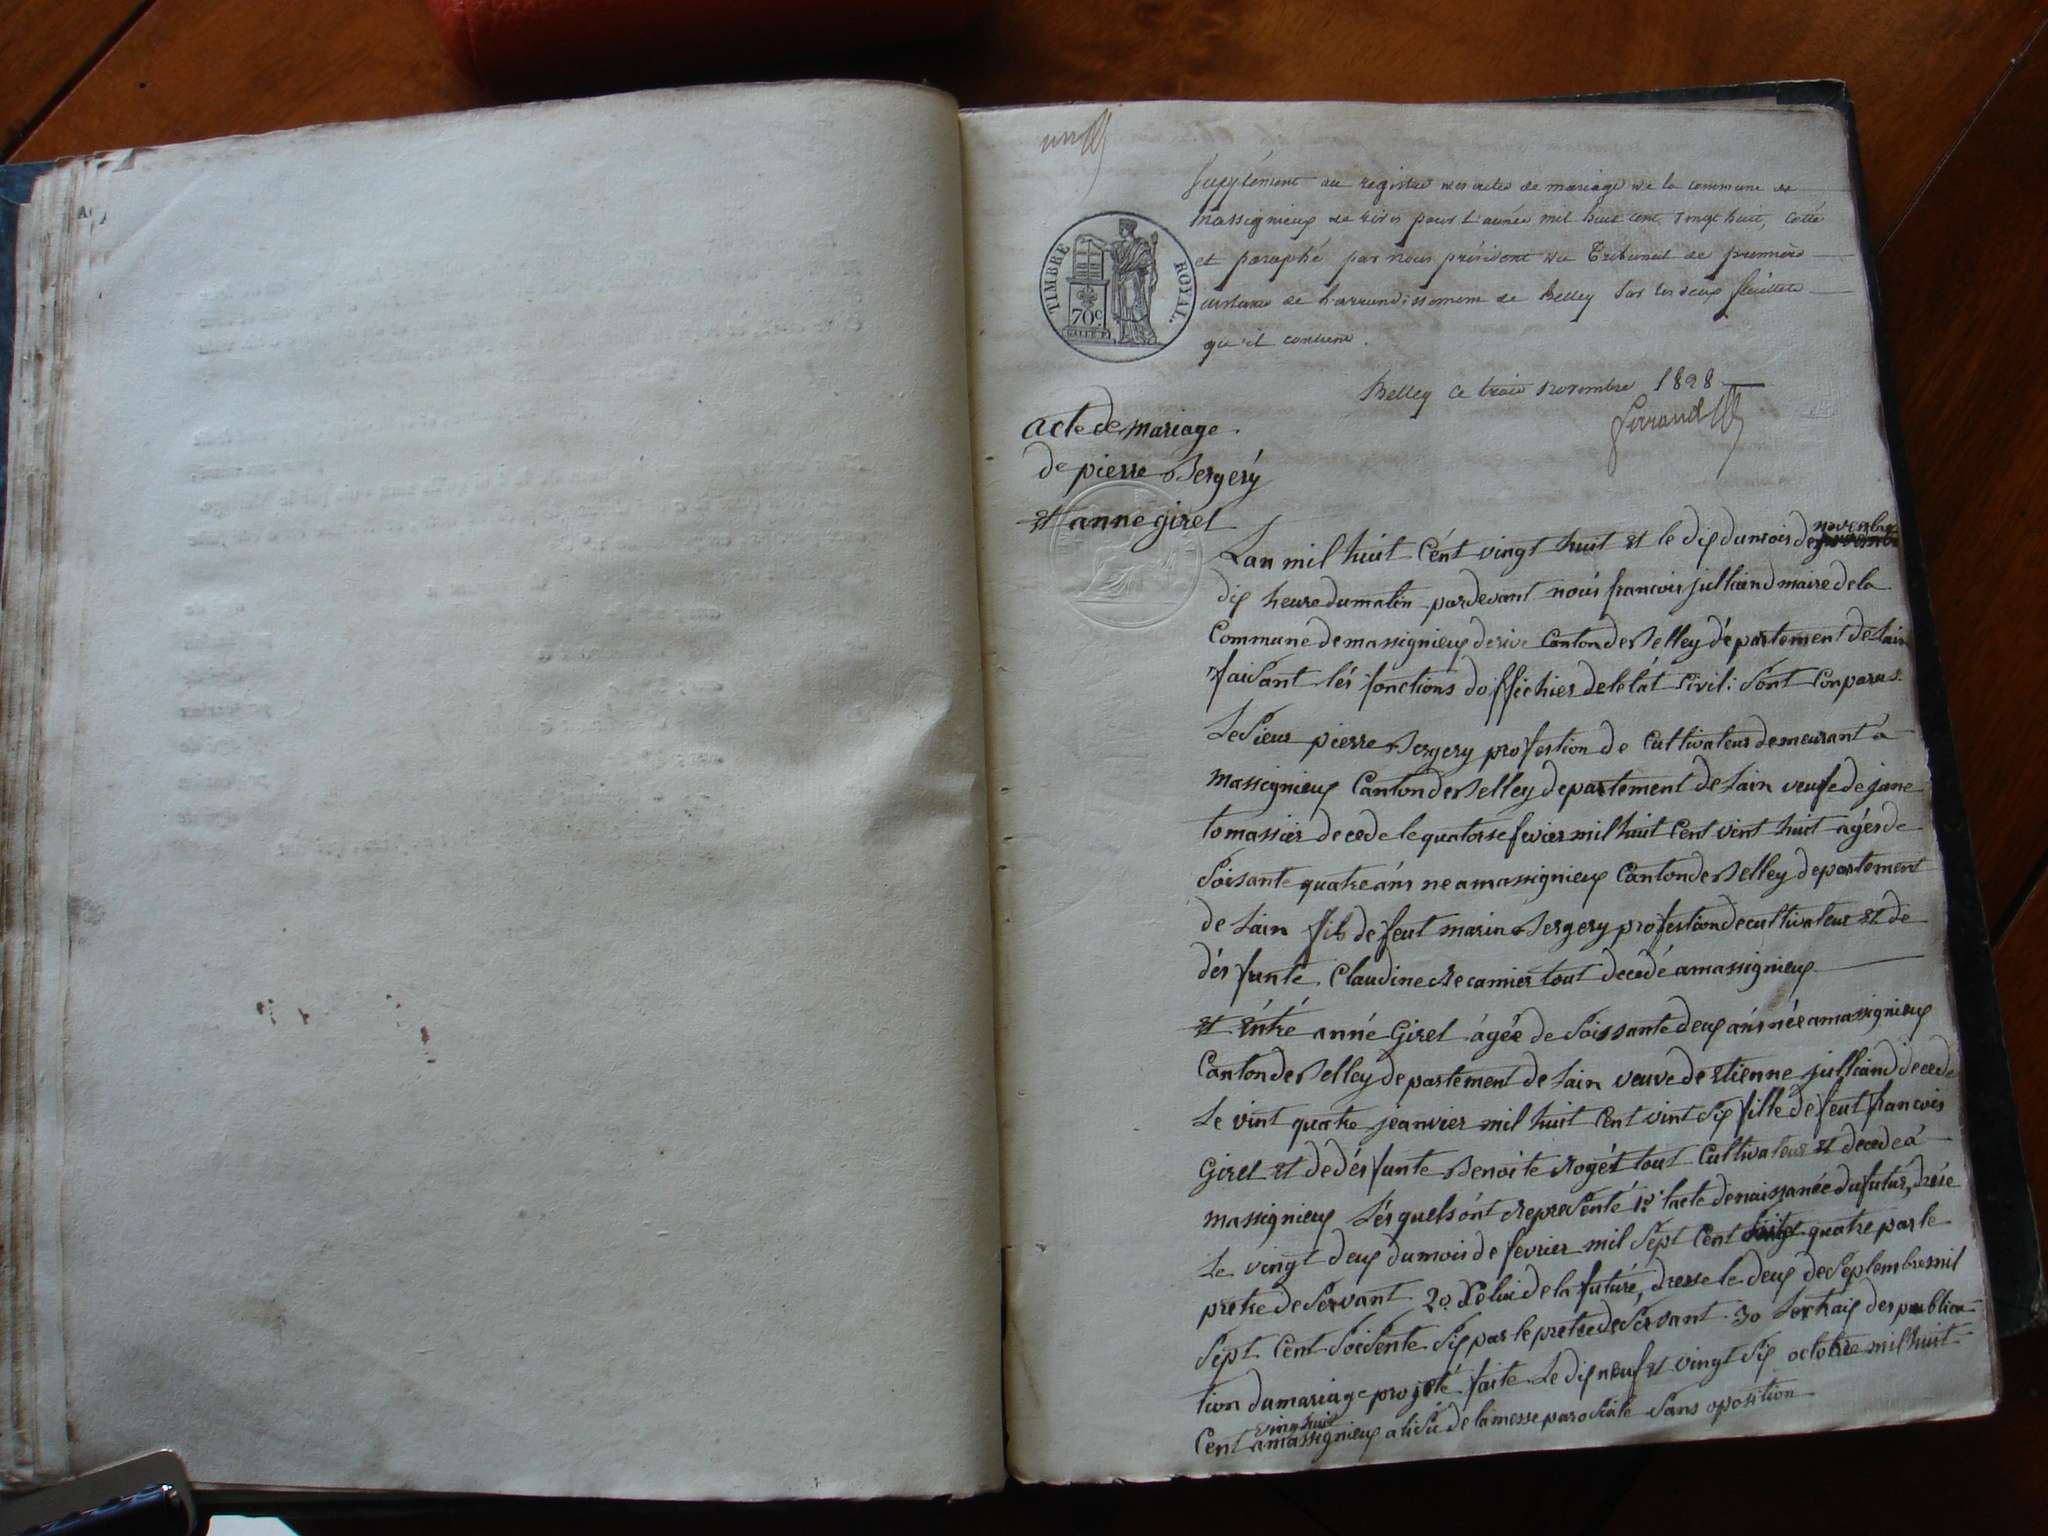 un
Suplément au registre des actes de mariage de la commune de
Massignieux de rives pour l'année mil huit cent vingt huit, cotté
et paraphé par nous président du Tribunal de première
instance de l'arrondissement de Belley sur les deux feuillets
qu'il contient.
TIMBRE ROYAL.
70c
Belley ce trois novembre 1828
acte de mariage
de pierre Bergéry
et anne girel
Lan mil huit Cént vingt huit et le dix du mois de novembre
dix heure du matin pardevant noús francois julliand maire de la
Commune de massignieux de rive Canton de Belley département de Lain
faisant lés fonctions doffichier de létat Sivil: Sont Conparus
Le Sieur pierre Bergery profestion de Cultivateur demeurant a
Massignieux Canton de Belley departement de Lain veufe de jane
tomassier decede le quatorse fevier mil huit Cent vint huit agés de
Soisante quatre áns ne a massignieux Canton de Belley departement
de Lain fils de feut marin Bergery profestion de cultivateur et de
dés funte Claudine Recamier tout decedé a massignieux
et éntré anné Girel ágée de Soissante deux áns née a massignieux
Canton de Belley departement de Lain veuve de etienne julliand decede
Le vint quatre jeanvier mil huit Cent vint Six fille de feut francois
Girel et de dés funte Benoite Rogét tout Cultivateur et decede á
massignieux Lésquels ónt Represénté 1o lacte de naissanée du futur, drésé
Le vingt deux du mois de fevrier mil Sept Cent quatre par le
pretre deservant 2o Célui de la futuré, dresse le deux de Septembre mil
Sept Cent Soisente Six par le pretre deservant 3o Lextrais des publica
tion du mariage projété faite Le dix neuf et vingt Six octobre mil huit
vingt huit
Cent a massignieux a lisue de la messe parosiale Sans oposition